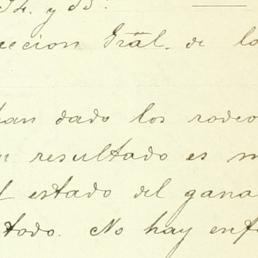 34. y 35.
ección Gral. de lo
han dado los rodeo
n resultado es m
l estado del gana
todo. No hay enf